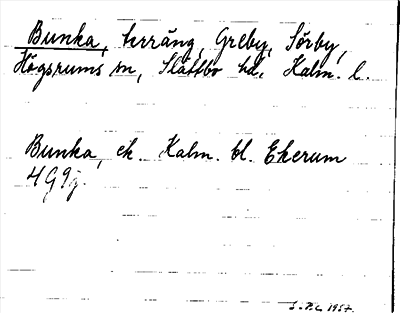 Bunka, terräng, Greby, Sörby,
Högsrums sn, Slättbo hd, Kalm. l.
Bunka, ek. Kalm. bl. Ekerum
4G9g.
S.P.L. 1957.